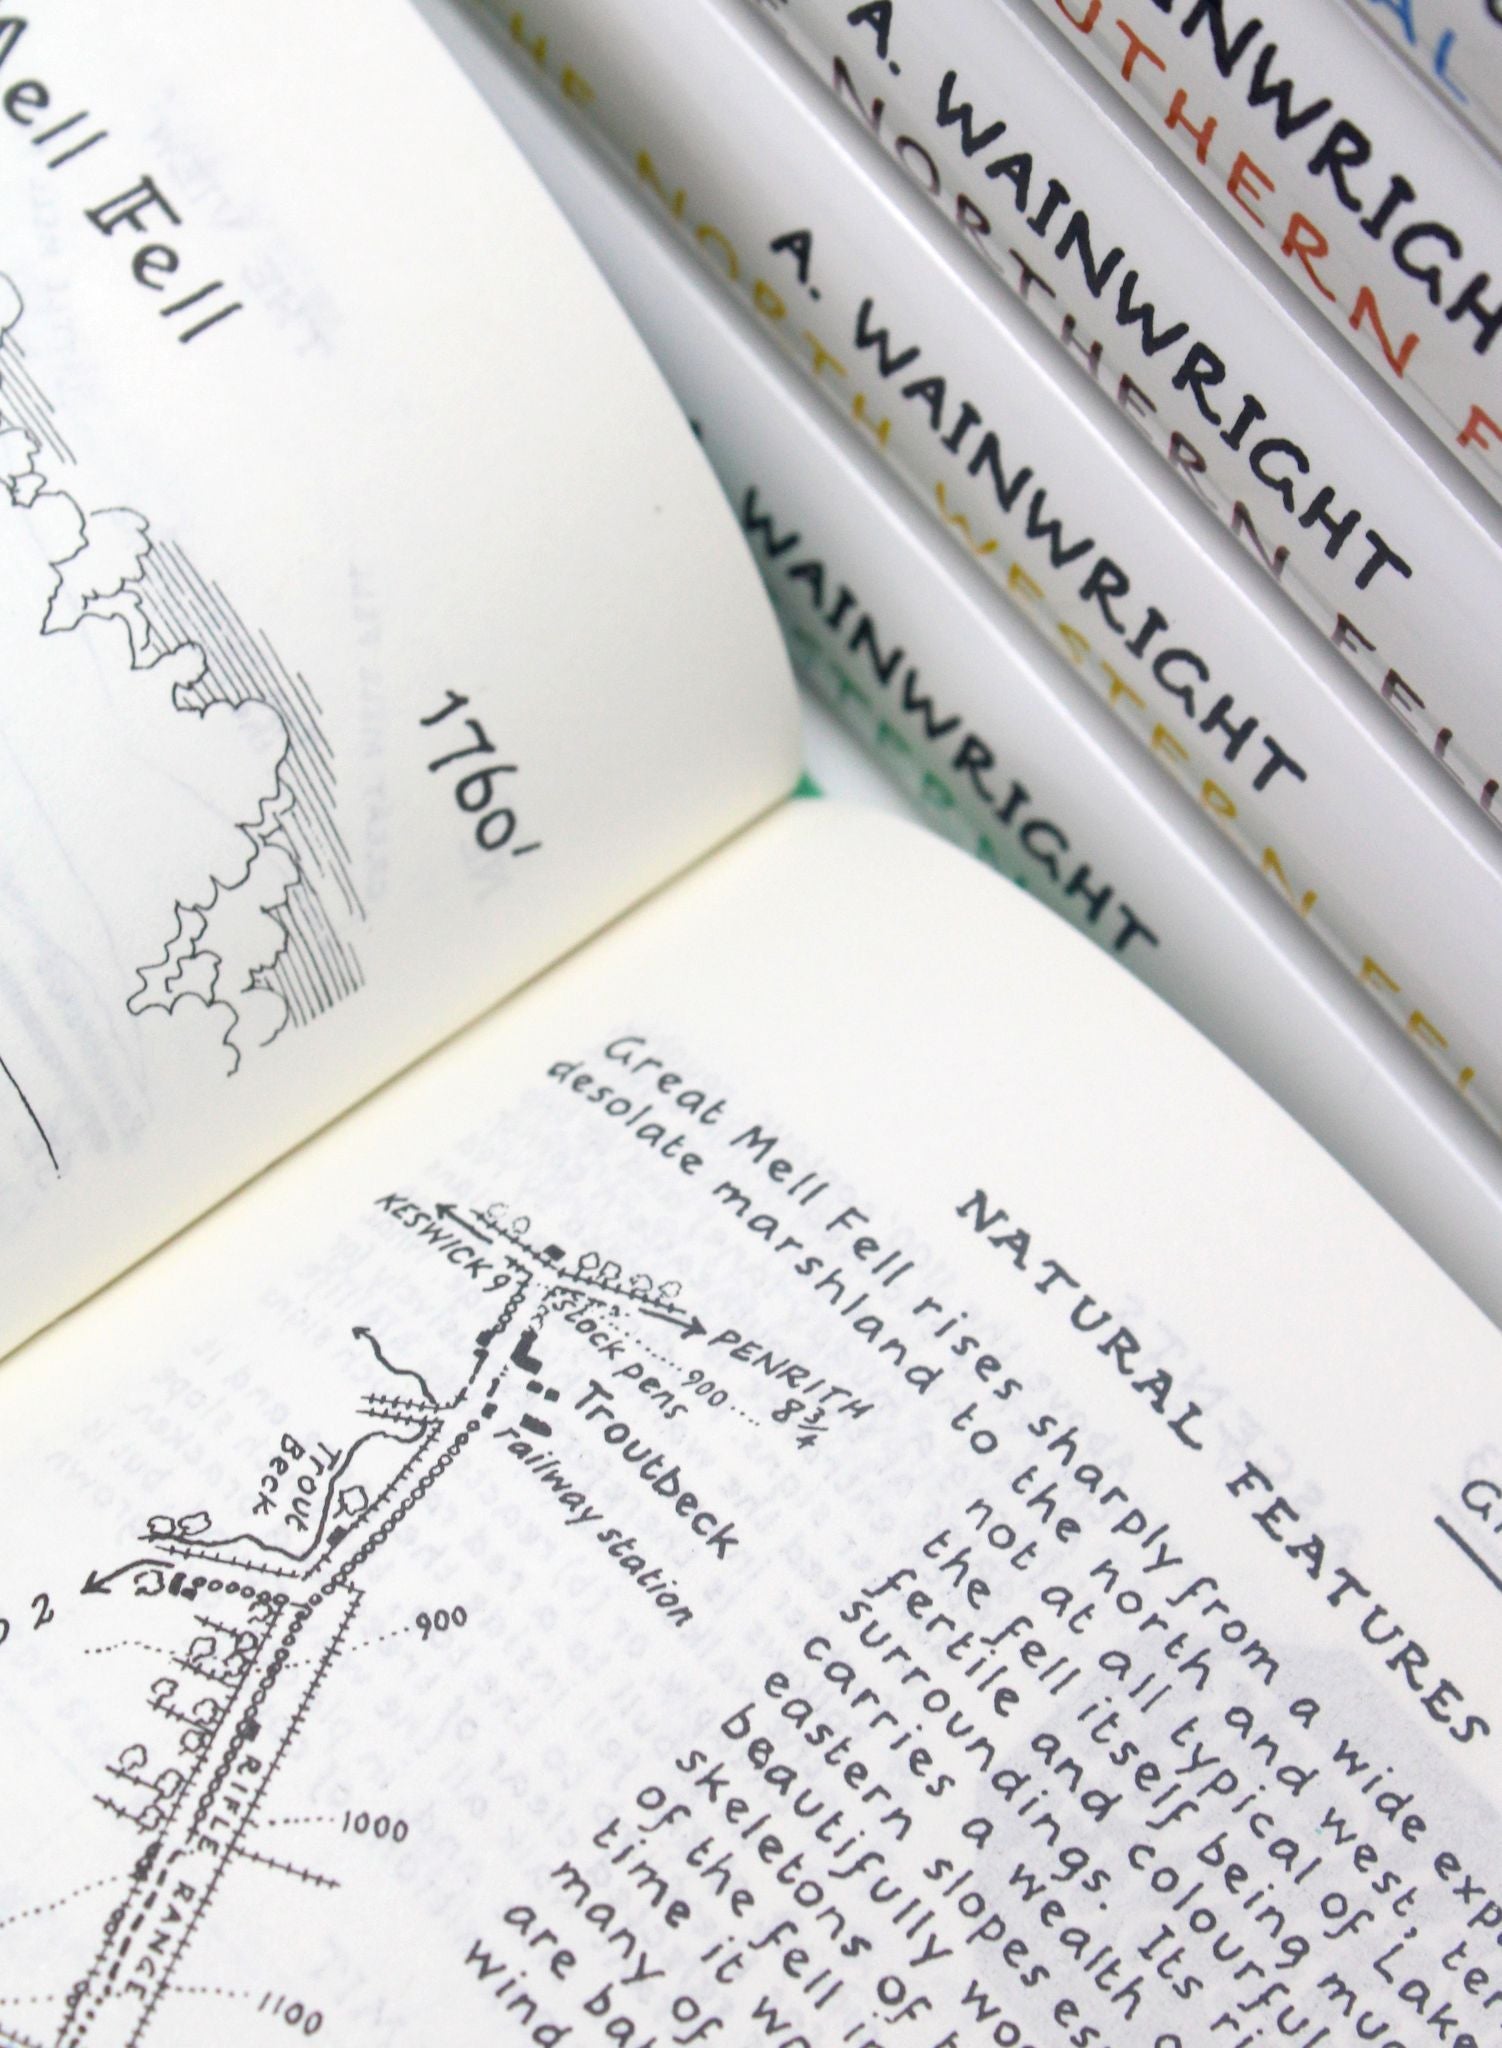 Mell Fell
1760'
A. WAINWRIGHT
NORTHERN FELL
A. WAINWRIGHT
THE NORTH WESTERN FEL
WAINWRIGHT
NATURAL FEATURES
Great Mell Fell rises sharply from a wide
desolate marshland to the north and west,
not at all typical of
the fell itself being
fertile and colourful
surroundings. Its
carries a wealth
eastern slopes
beautifully
skeletons of
of the fell
time it
many of
are
wind
KESWICK 9
PENRITH
8¾
stock pens
900
Troutbeck
railway station
Trout
Beck
2
900
RIFLE RANGE
1000
1100